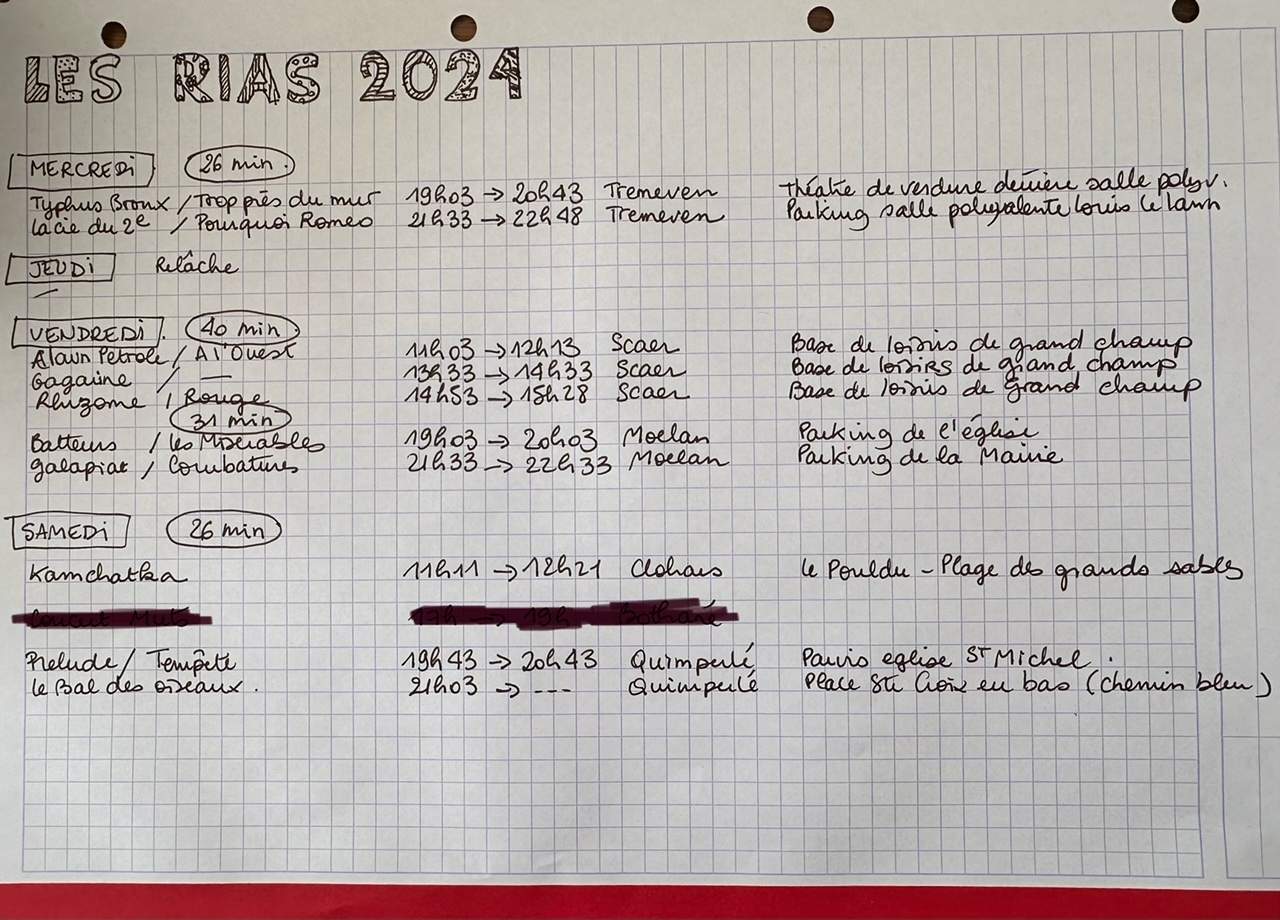 LES RIAS 2024
MERCREDi 26 min.
Typhus Bronx / Trop près du mur 19h03 → 20h43 Tremeven Théatre de verdure derrière salle polyv.
La cie du 2e / Pourquoi Romeo 21h33 → 22h48 Tremeven Parking salle polyvalente Louis Le Lann
JEUDi Relâche
VENDREDi. 40 min
Alawn Petrole / A l'Ouest 11h03 → 12h13 Scaer Base de loisirs de grand champ
Gagaine / — 13h33 → 14h33 Scaer Base de loisirs de grand champ
Rhizome / Rouge 14h53 → 15h28 Scaer Base de loisirs de Grand champ
31 min
Batteurs / Les Misérables 19h03 → 20h03 Moelan Parking de l'église
galapiat / Courbatures 21h33 → 22h33 Moelan Parking de la Mairie
SAMEDi 26 min
Kamchatka 11h11 → 12h21 Clohars Le Pouldu - Plage des grands sables
19h → 19h
Prelude / Tempête 19h43 → 20h43 Quimperlé Parvis eglise St Michel.
Le Bal des oiseaux. 21h03 → --- Quimperlé Place Ste Croix en bas (chemin bleu)